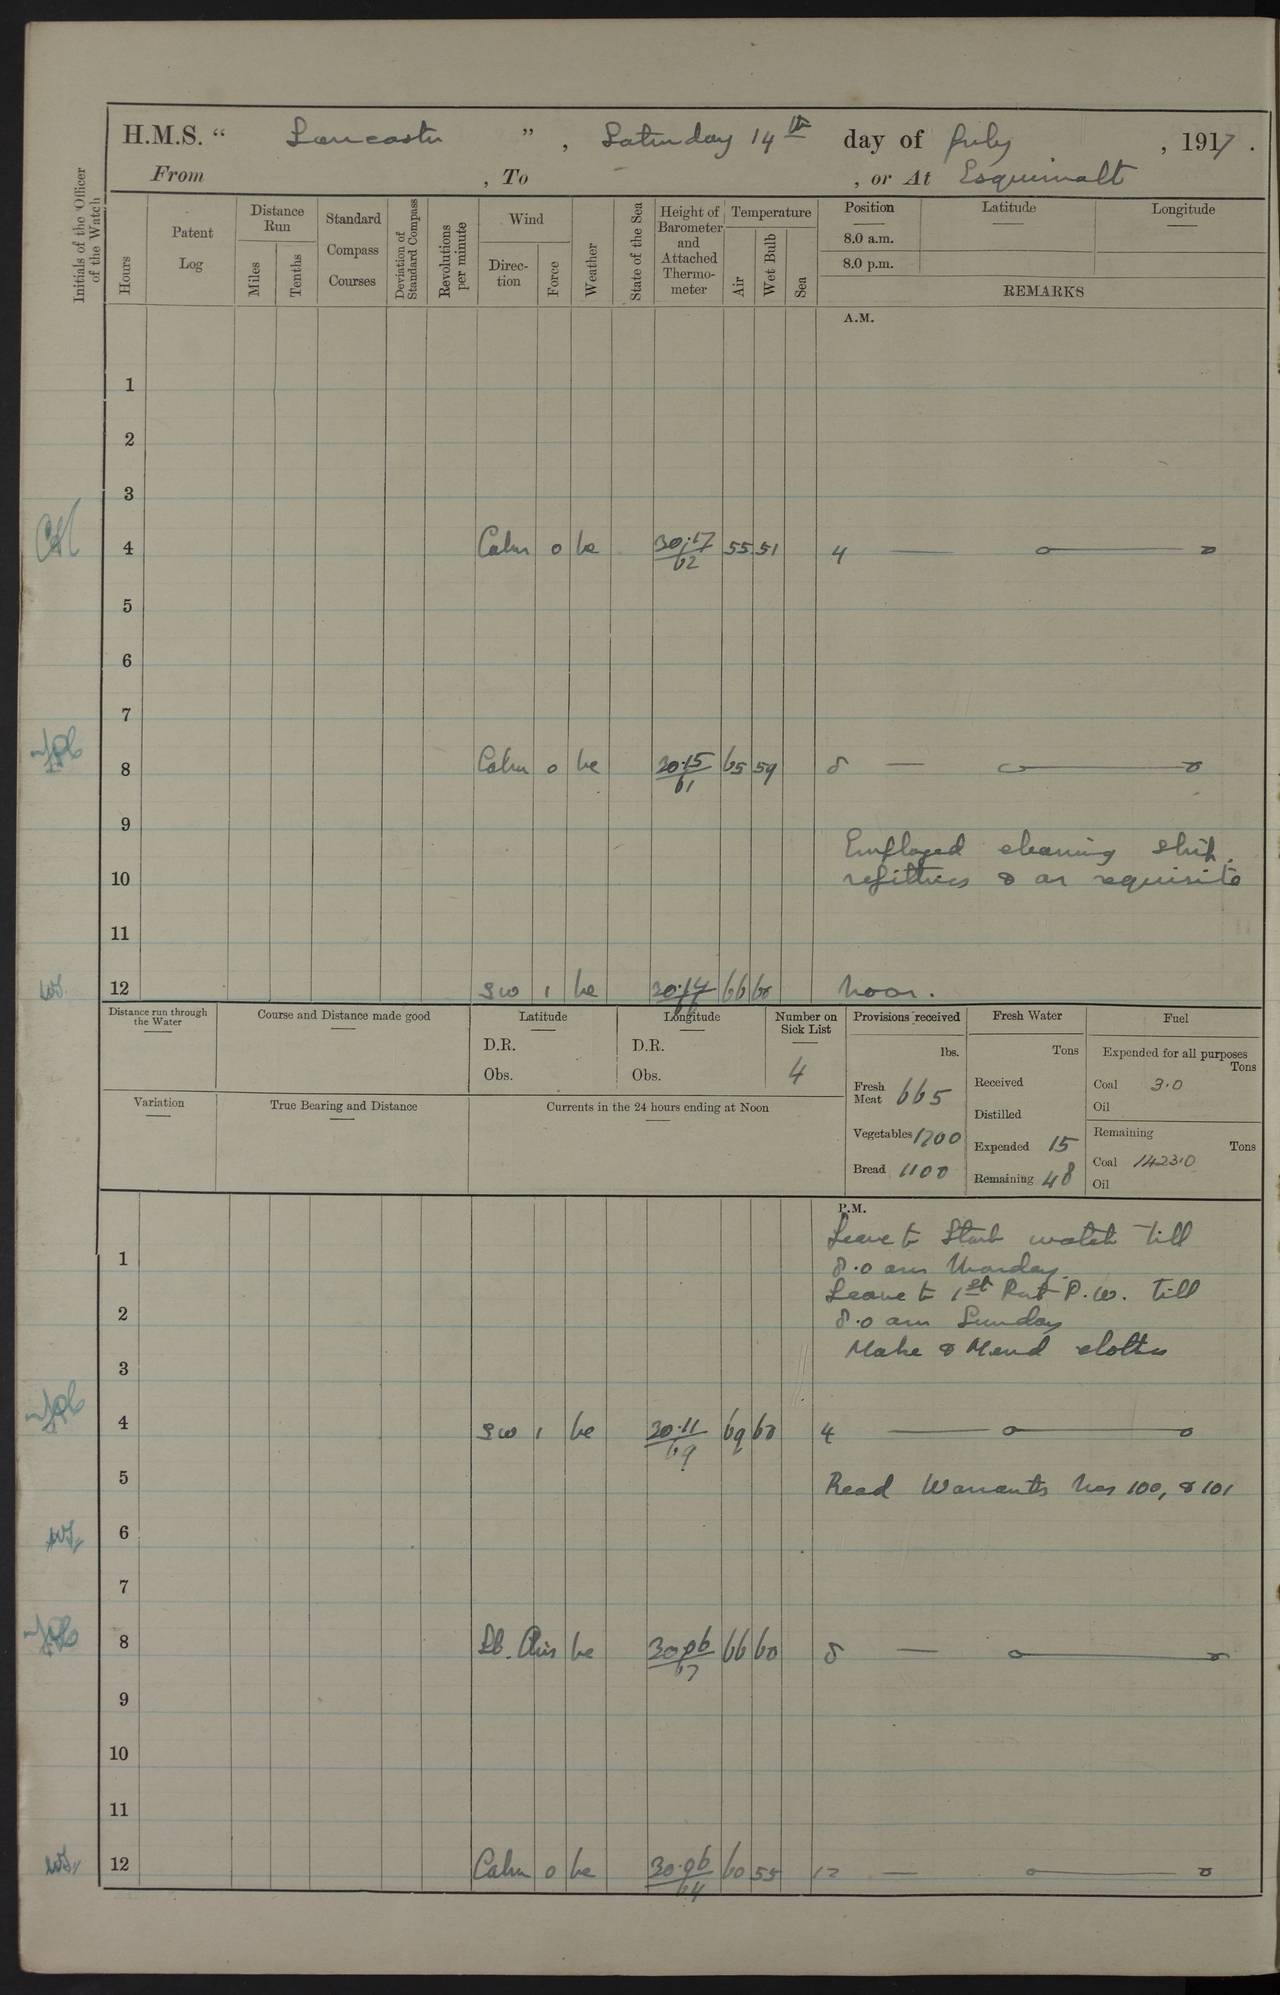 H.M.S. “ Lancaster ” , Saturday 14th day of July , 1917 .
From , To – , or At Esquimalt
Initials of the Officer of the Watch
Hours
Patent Log
Distance Run
Miles
Tenths
Standard Compass Courses
Deviation of Standard Compass
Revolutions per minute
Wind
Direc-tion
Force
Weather
State of the Sea
Height of Barometer and Attached Thermo-meter
Temperature
Air
Wet Bulb
Sea
Position Latitude Longitude
8.0 a.m.
8.0 p.m.
REMARKS
A.M.
1
2
3
4 Calm 0 bc 30.17/62 55 51 4
5
6
7
8 Calm 0 bc 30.15/61 65 59 8
9
Employed cleaning ship,
10 refitting & as requisite
11
12 SW 1 bc 30.14/66 66 60 Noon.
Distance run through the Water
Course and Distance made good
Latitude
D.R.
Obs.
Longitude
D.R.
Obs.
Number on Sick List
4
Variation
True Bearing and Distance
Currents in the 24 hours ending at Noon
Provisions received
lbs.
Fresh Meat 665
Vegetables 1700
Bread 1100
Fresh Water
Tons
Received
Distilled
Expended 15
Remaining 48
Fuel
Expended for all purposes
Tons
Coal 3.0
Oil
Remaining
Tons
Coal 1423.0
Oil
P.M.
Leave to Starb watch till
1
8.0 am Monday.
Leave to 1st Part P.W. till
2
8.0 am Sunday
Make & Mend clothes
3
4 SW 1 bc 30.11/69 69 60 4
5 Read Warrants Nos 100, & 101
6
7
8 Lt. Airs bc 30.06/67 66 60 8
9
10
11
12 Calm 0 bc 30.06/64 60 55 12